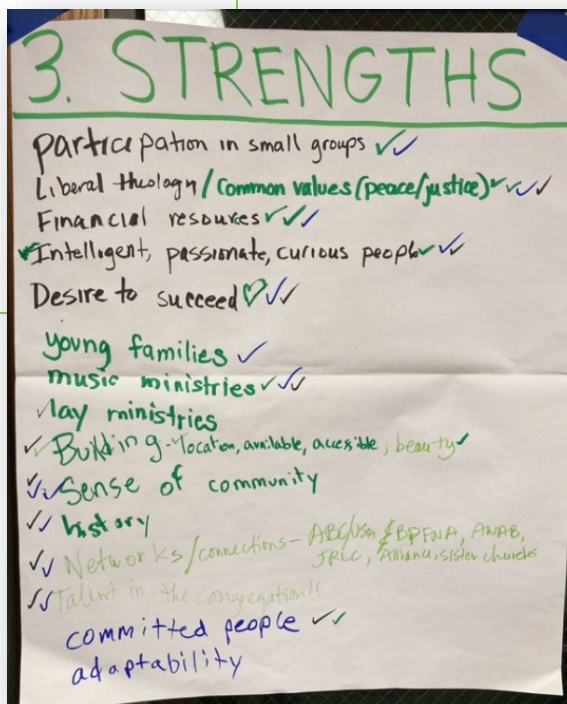 3. STRENGTHS
Participation in small groups ✓✓
Liberal theology/Common values (peace/justice) ✓✓✓✓
Financial resources ✓✓✓
✓Intelligent, passionate, curious people ✓✓✓
Desire to succeed ♡✓✓
young families ✓
music ministries ✓✓✓
✓lay ministries
✓✓Building - location, available, accessible, beauty ✓
✓✓Sense of community
✓✓ history
✓✓ Networks/connections - ABC/USA & BPFNA, AWAB,
JRLC, Alliance, sister churches
✓✓Talent in the congregation!!
committed people ✓✓
adaptability